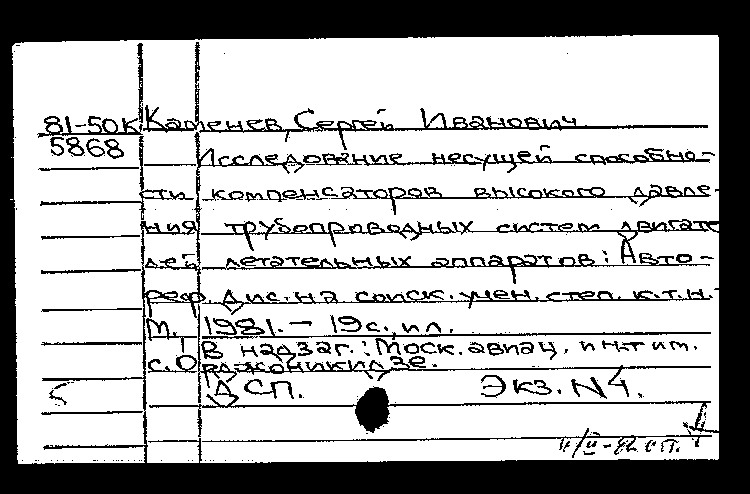 81-50К Каменев, Сергей Иванович
5868
Исследование несущей способно-
сти компенсаторов высокого давле-
ния трубопроводных систем двигате-
лей летательных аппаратов: Авто-
реф. дис. на соиск. учен. степ. к.т.н.-
М., 1981. - 19 с., ил.
В надзаг.: Моск. авиац. ин-т им.
с. Орджоникидзе.
5 ДСП. Экз. N4.